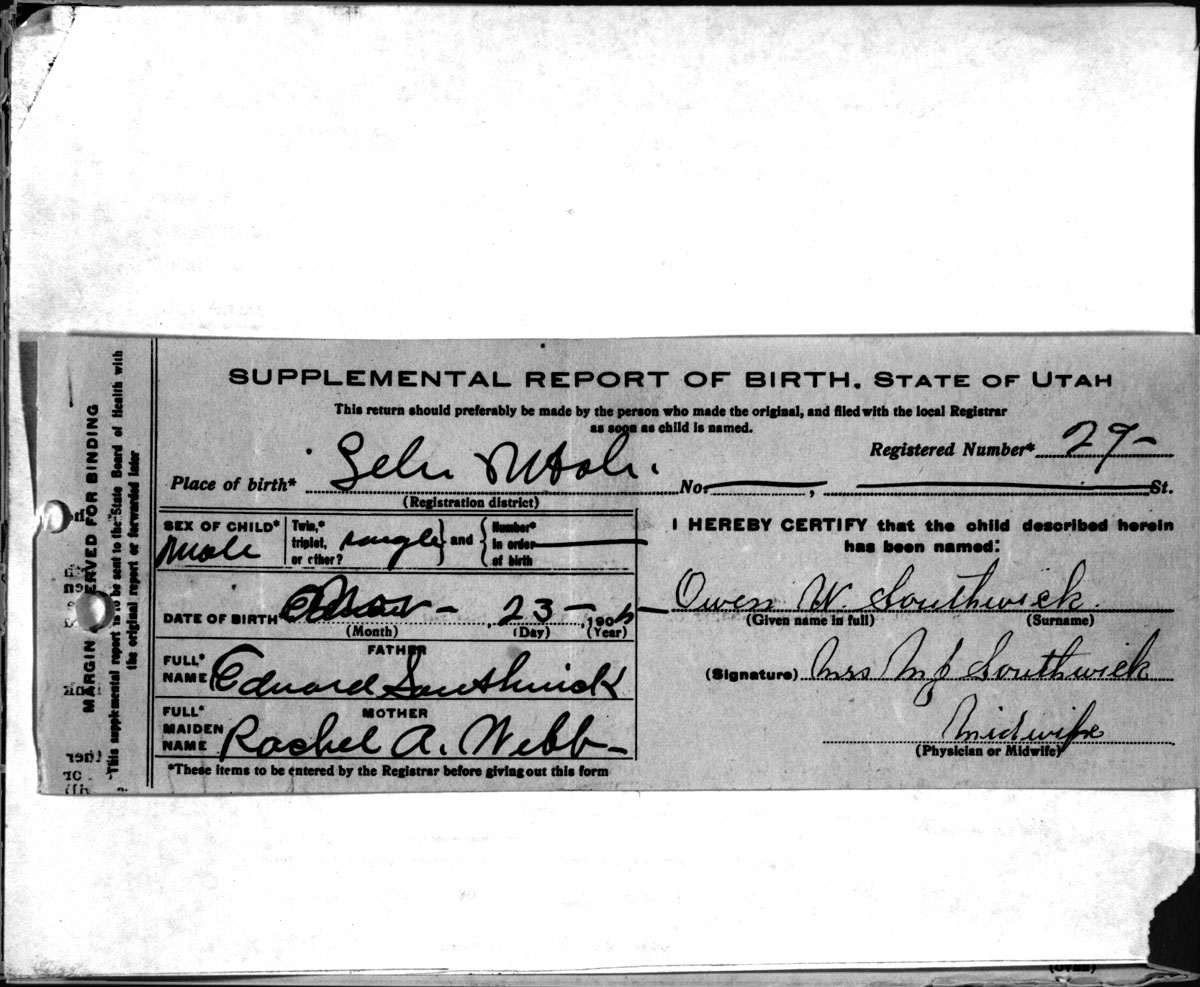 SUPPLEMENTAL REPORT OF BIRTH. STATE OF UTAH
This return should preferably be made by the person who made the original, and filed with the local Registrar
as soon as child is named.
Registered Number* 29-
Place of birth* Lehi Utah. No. , St.
(Registration district)
SEX OF CHILD* Male
Twin,* triplet, or other? single and Number* in order of birth
DATE OF BIRTH 23 - , 190
(Month) (Day) (Year)
FATHER
FULL* NAME Edward Southwick
MOTHER
FULL* MAIDEN NAME Rachel A. Webb
*These items to be entered by the Registrar before giving out this form
I HEREBY CERTIFY that the child described herein
has been named:
Owen W. Southwick.
(Given name in full) (Surname)
(Signature) Mrs M J Southwick
Midwife
(Physician or Midwife)
MARGIN RESERVED FOR BINDING
This supplemental report to be sent to the State Board of Health with
the original report or forwarded later
(OVER)